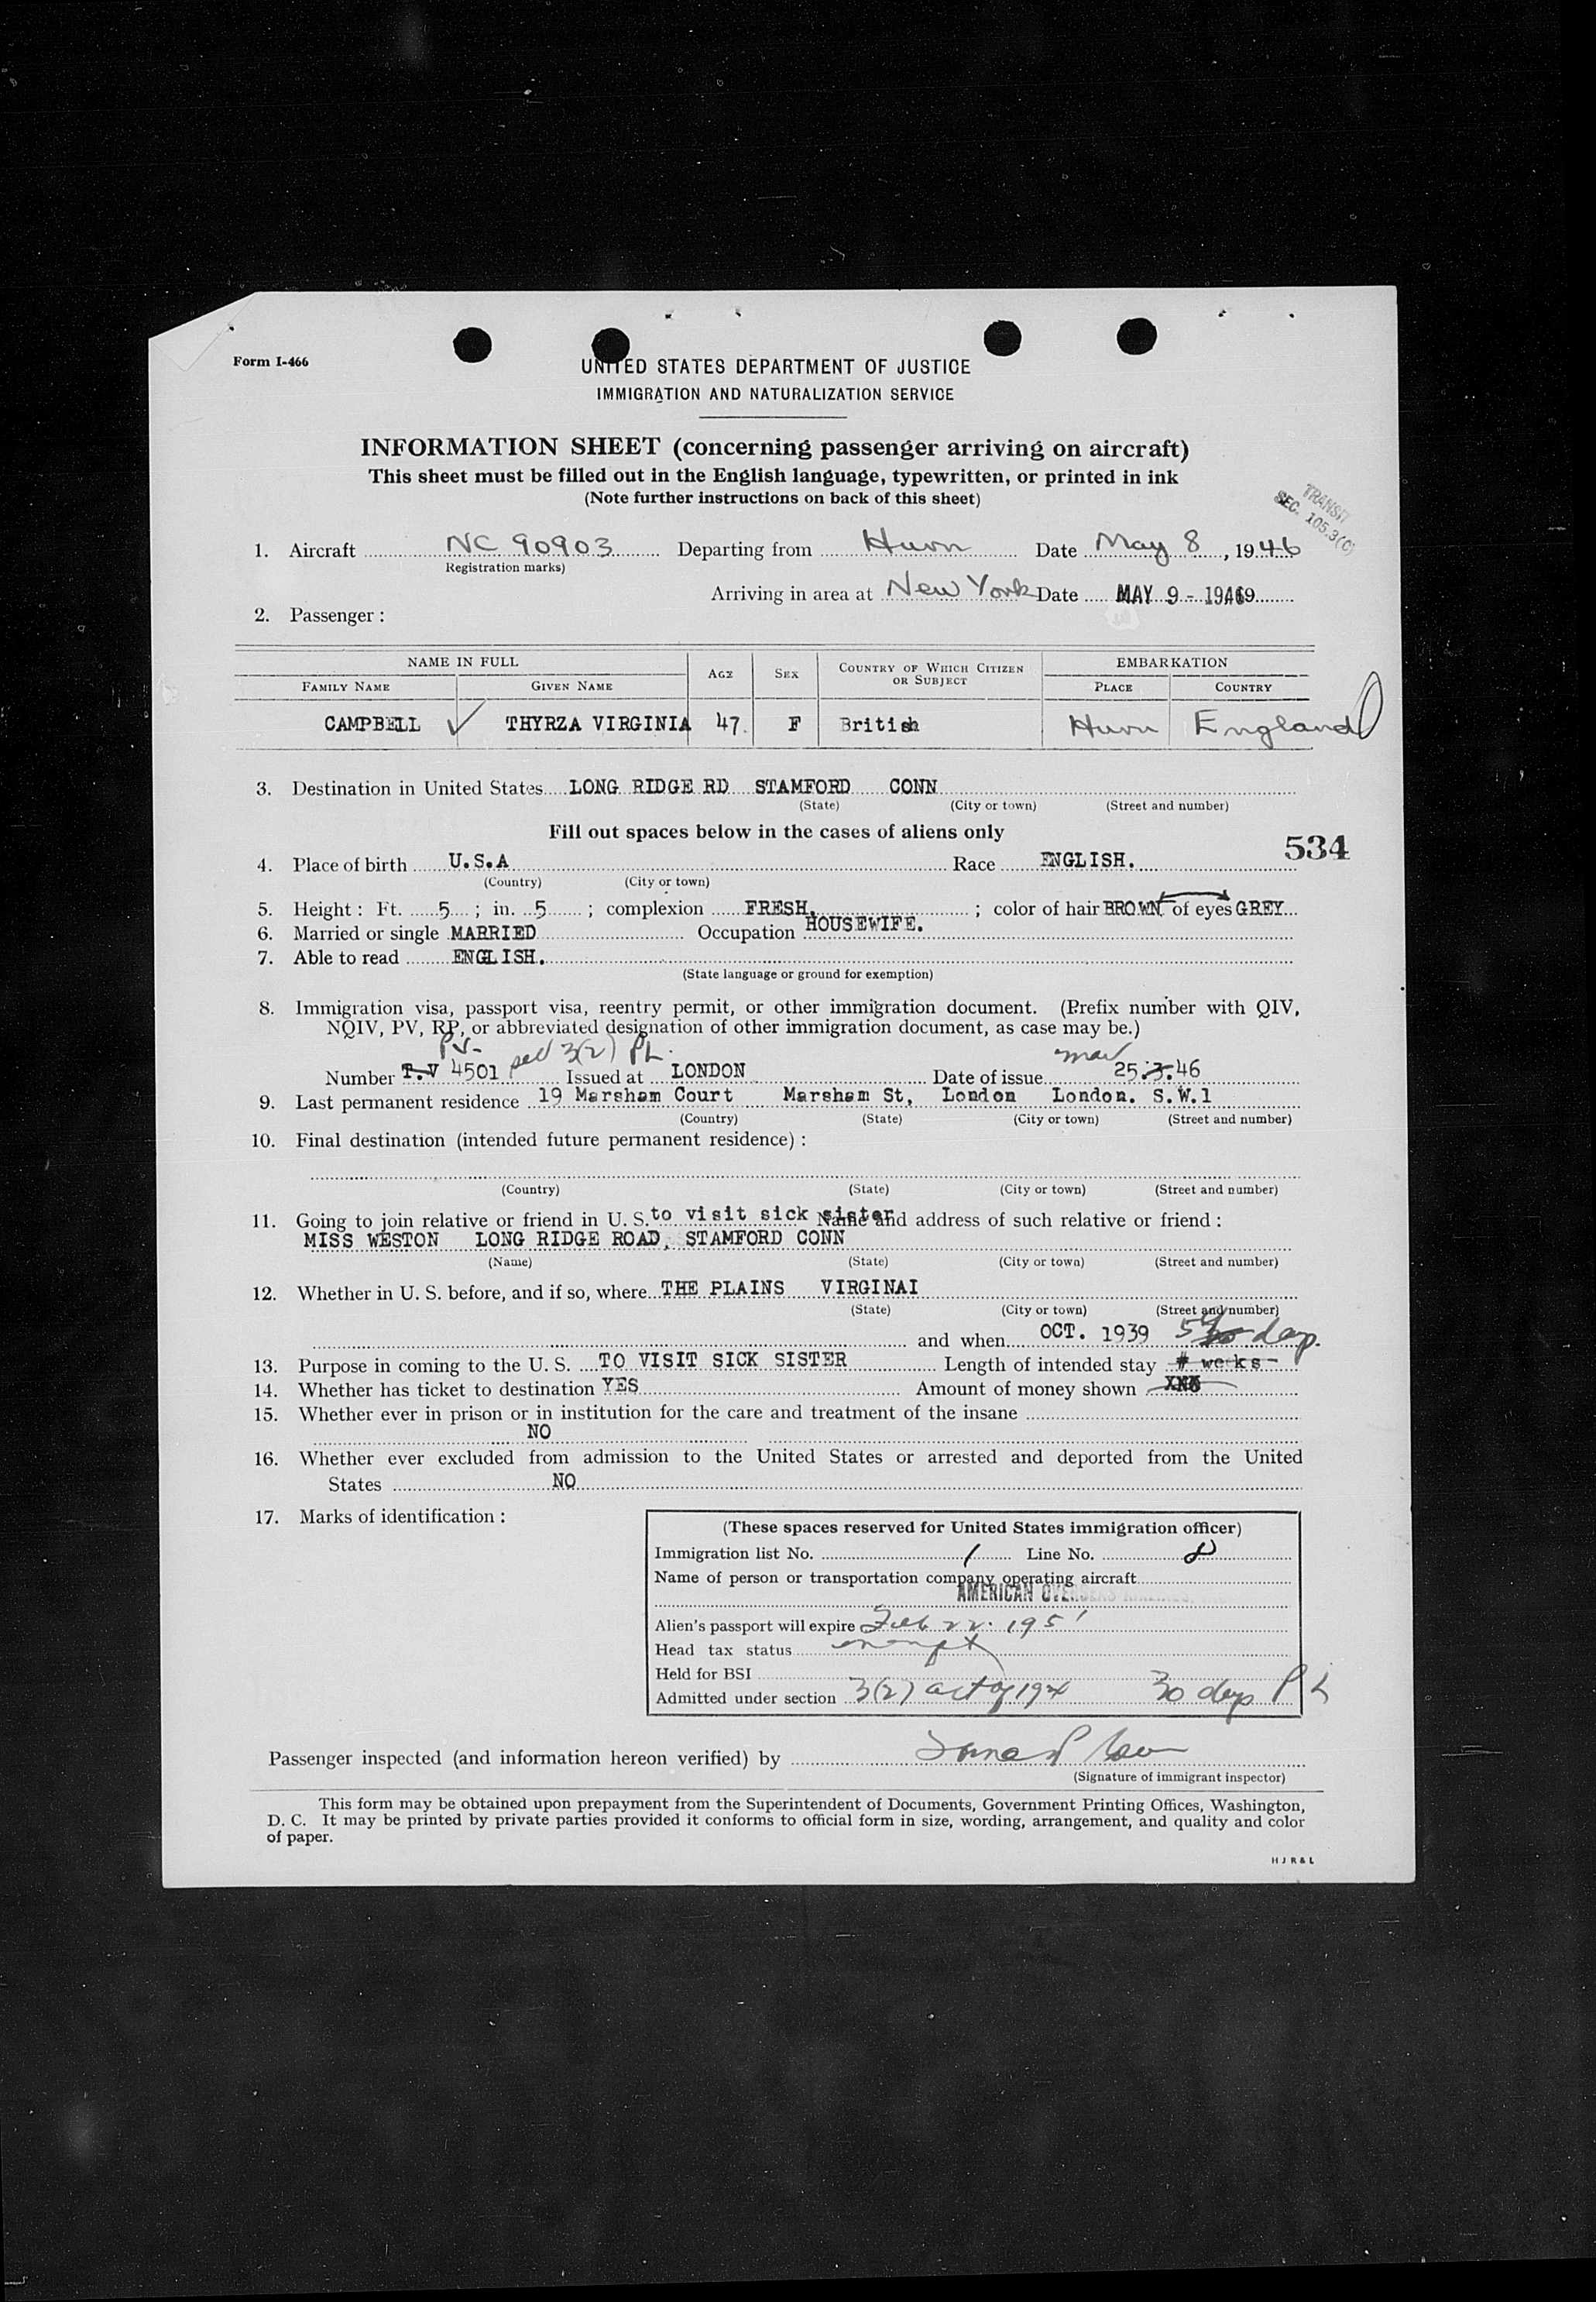 Form I-466
UNITED STATES DEPARTMENT OF JUSTICE
IMMIGRATION AND NATURALIZATION SERVICE
INFORMATION SHEET (concerning passenger arriving on aircraft)
This sheet must be filled out in the English language, typewritten, or printed in ink
(Note further instructions on back of this sheet)
TRANSIT
SEC. 105.3(C)
1. Aircraft NC 90903 Departing from Hurn Date May 8, 1946
Registration marks)
Arriving in area at New York Date MAY 9 - 1946 19
2. Passenger :
NAME IN FULL AGE SEX COUNTRY OF WHICH CITIZEN OR SUBJECT EMBARKATION
FAMILY NAME GIVEN NAME PLACE COUNTRY
CAMPBELL ✓ THYRZA VIRGINIA 47. F British Hurn England
3. Destination in United States LONG RIDGE RD STAMFORD CONN
(State) (City or town) (Street and number)
Fill out spaces below in the cases of aliens only
534
4. Place of birth U.S.A Race ENGLISH.
(Country) (City or town)
5. Height : Ft. 5 ; in. 5 ; complexion FRESH. ; color of hair BROWN of eyes GREY
6. Married or single MARRIED Occupation HOUSEWIFE.
7. Able to read ENGLISH.
(State language or ground for exemption)
8. Immigration visa, passport visa, reentry permit, or other immigration document. (Prefix number with QIV,
NQIV, PV, RP, or abbreviated designation of other immigration document, as case may be.)
PV- 3(2) PL. mar
Number T.V 4501 Issued at LONDON Date of issue 25.3.46
9. Last permanent residence 19 Marsham Court Marsham St, London London. S.W.1
(Country) (State) (City or town) (Street and number)
10. Final destination (intended future permanent residence) :
(Country) (State) (City or town) (Street and number)
11. Going to join relative or friend in U. S. to visit sick sister Name and address of such relative or friend :
MISS WESTON LONG RIDGE ROAD, STAMFORD CONN
(Name) (State) (City or town) (Street and number)
12. Whether in U. S. before, and if so, where THE PLAINS VIRGINAI
(State) (City or town) (Street and number)
and when OCT. 1939 days.
13. Purpose in coming to the U. S. TO VISIT SICK SISTER Length of intended stay # weeks-
14. Whether has ticket to destination YES Amount of money shown
15. Whether ever in prison or in institution for the care and treatment of the insane
NO
16. Whether ever excluded from admission to the United States or arrested and deported from the United
States NO
17. Marks of identification :
(These spaces reserved for United States immigration officer)
Immigration list No. 1 Line No. 8
Name of person or transportation company operating aircraft
AMERICAN OVERSEAS AIRLINES, INC.
Alien's passport will expire Feb 22. 1951
Head tax status exempt
Held for BSI
Admitted under section 3(2) act of 1924 30 days PL
Passenger inspected (and information hereon verified) by
(Signature of immigrant inspector)
This form may be obtained upon prepayment from the Superintendent of Documents, Government Printing Offices, Washington,
D. C. It may be printed by private parties provided it conforms to official form in size, wording, arrangement, and quality and color
of paper.
H J R & L